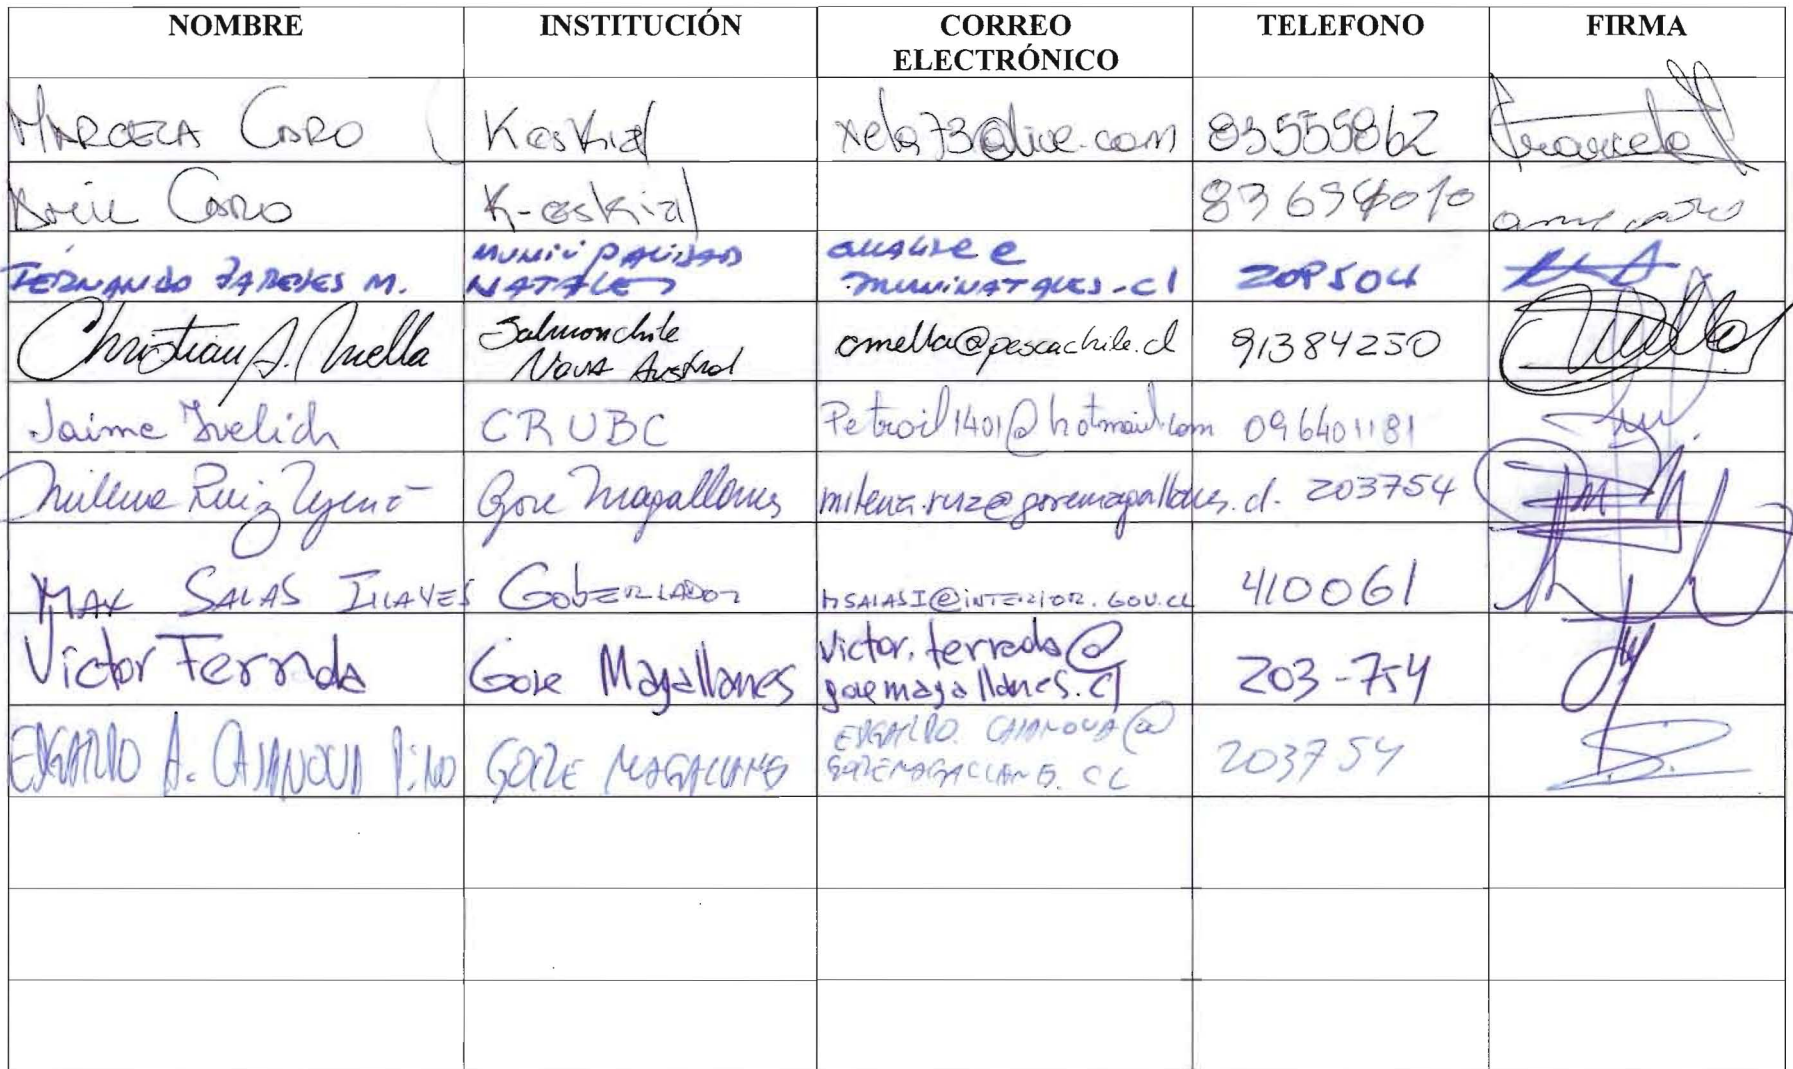 NOMBRE INSTITUCIÓN CORREO ELECTRÓNICO TELEFONO FIRMA
MARCELA CARO Kaskial xela73@live.com 83555862 Marcela
CARO K-askial
MUNICIPALIDAD
FERNANDO PAREDES M. NATALES MUNINATALES.cl
Christian A. Mella Salmonchile cmella@pescachile.cl 91384250
NOVA Austral
Jaime Ivelich CRUBC Petroil1401@hotmail.com 096401181
Milena Ruiz Gore Magallanes milena.ruiz@goremagallanes.cl. 203754
MAX SALAS ILLANES GobERNADOR MSALASI@INTERIOR.GOV.CL 410061
Victor Ferrada Gore Magallanes victor.ferrada@
goremagallanes.cl 203-754
EDGARDO A. CASANOVA PINO GORE MAGALLANES EDGARDO.CASANOVA@
GOREMAGALLANES.CL 203754